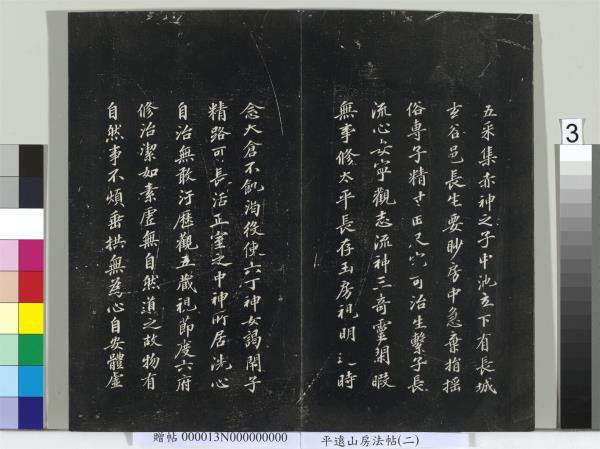 五采集赤神之子中池立下有長城
玄谷邑長生要眇房中急棄捐搖
俗專子精寸田尺宅可治生繫子長
流心安寧觀志流神三奇靈閒暇
無事修太平長存玉房視明時
念大倉不飢渴役使六丁神女謁閉子
精路可長活正室之中神所居洗心
自治無敢汙歷觀五藏視節度六府
修治潔如素虛無自然道之故物有
自然事不煩垂拱無為心自安體虛
3
贈帖 000013N000000000 平遠山房法帖(二)